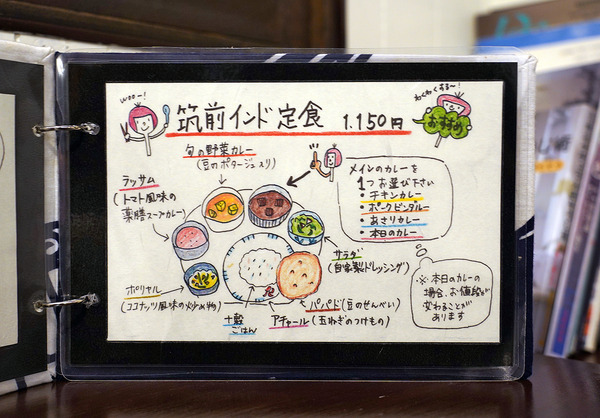 woo〜!
筑前インド定食 1.150円
わくわくする〜!
おすすめ
旬の野菜カレー
(豆のポタージュ入り)
ラッサム
(トマト風味の
薬膳スープカレー)
メインのカレーを
1つお選び下さい
・チキンカレー
・ポークビンダルー
・あさりカレー
・本日のカレー
サラダ
(自家製ドレッシング)
ポリヤル
(ココナッツ風味の炒め物)
パパド(豆のせんべい)
アチャール(玉ねぎのつけもの)
十穀
ごはん
※本日のカレーの
場合、お値段が
変わることが
あります